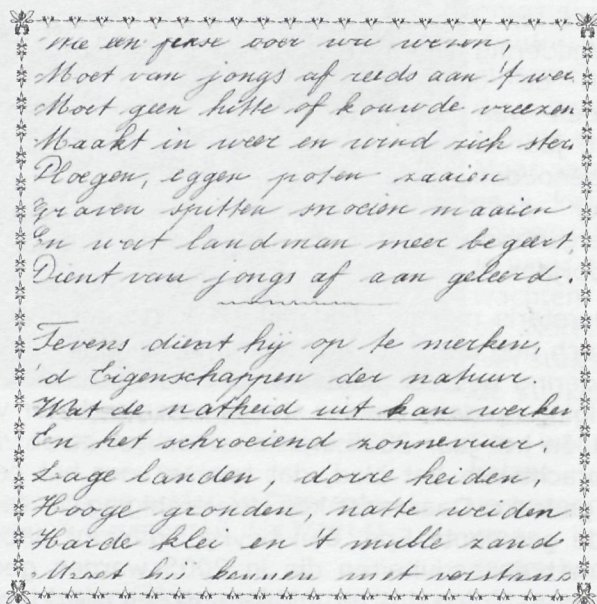 Wie een boer wil wezen,
Moet van jongs af reeds aan 't wer
Moet geen hitte of kouwde vreezen
Maakt in weer en wind zich ster
Ploegen, eggen poten zaaien
Graven spitten snoeien maaien
En wat landman meer begeert,
Dient van jongs af aan geleerd.
Tevens dient hij op te merken,
'd Eigenschappen der natuur.
Wat de natheid uit kan werken
En het schroeiend zonnevuur.
Lage landen, dorre heiden,
Hooge gronden, natte weiden
Harde klei en 't mulle zand
Moet hij kennen met verstand